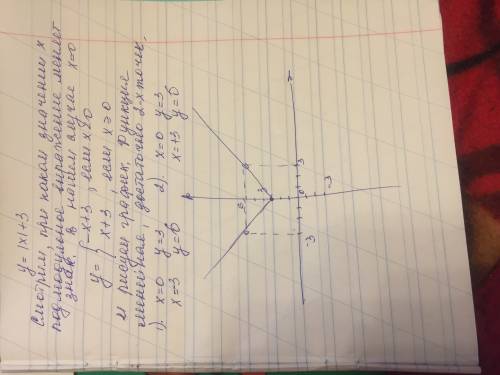 y = |x|+3
Смотрим, при каком значении x
подмодульное выражение меняет
знак. В нашем случае x=0
y = { -x+3, если x<0
x+3, если x⩾0
И рисуем график. Функция
линейная, достаточно 2-х точек.
1). x=0 y=3 2). x=0 y=3
x=-3 y=6 x=+3 y=6
6
3
-3
0
3
-3